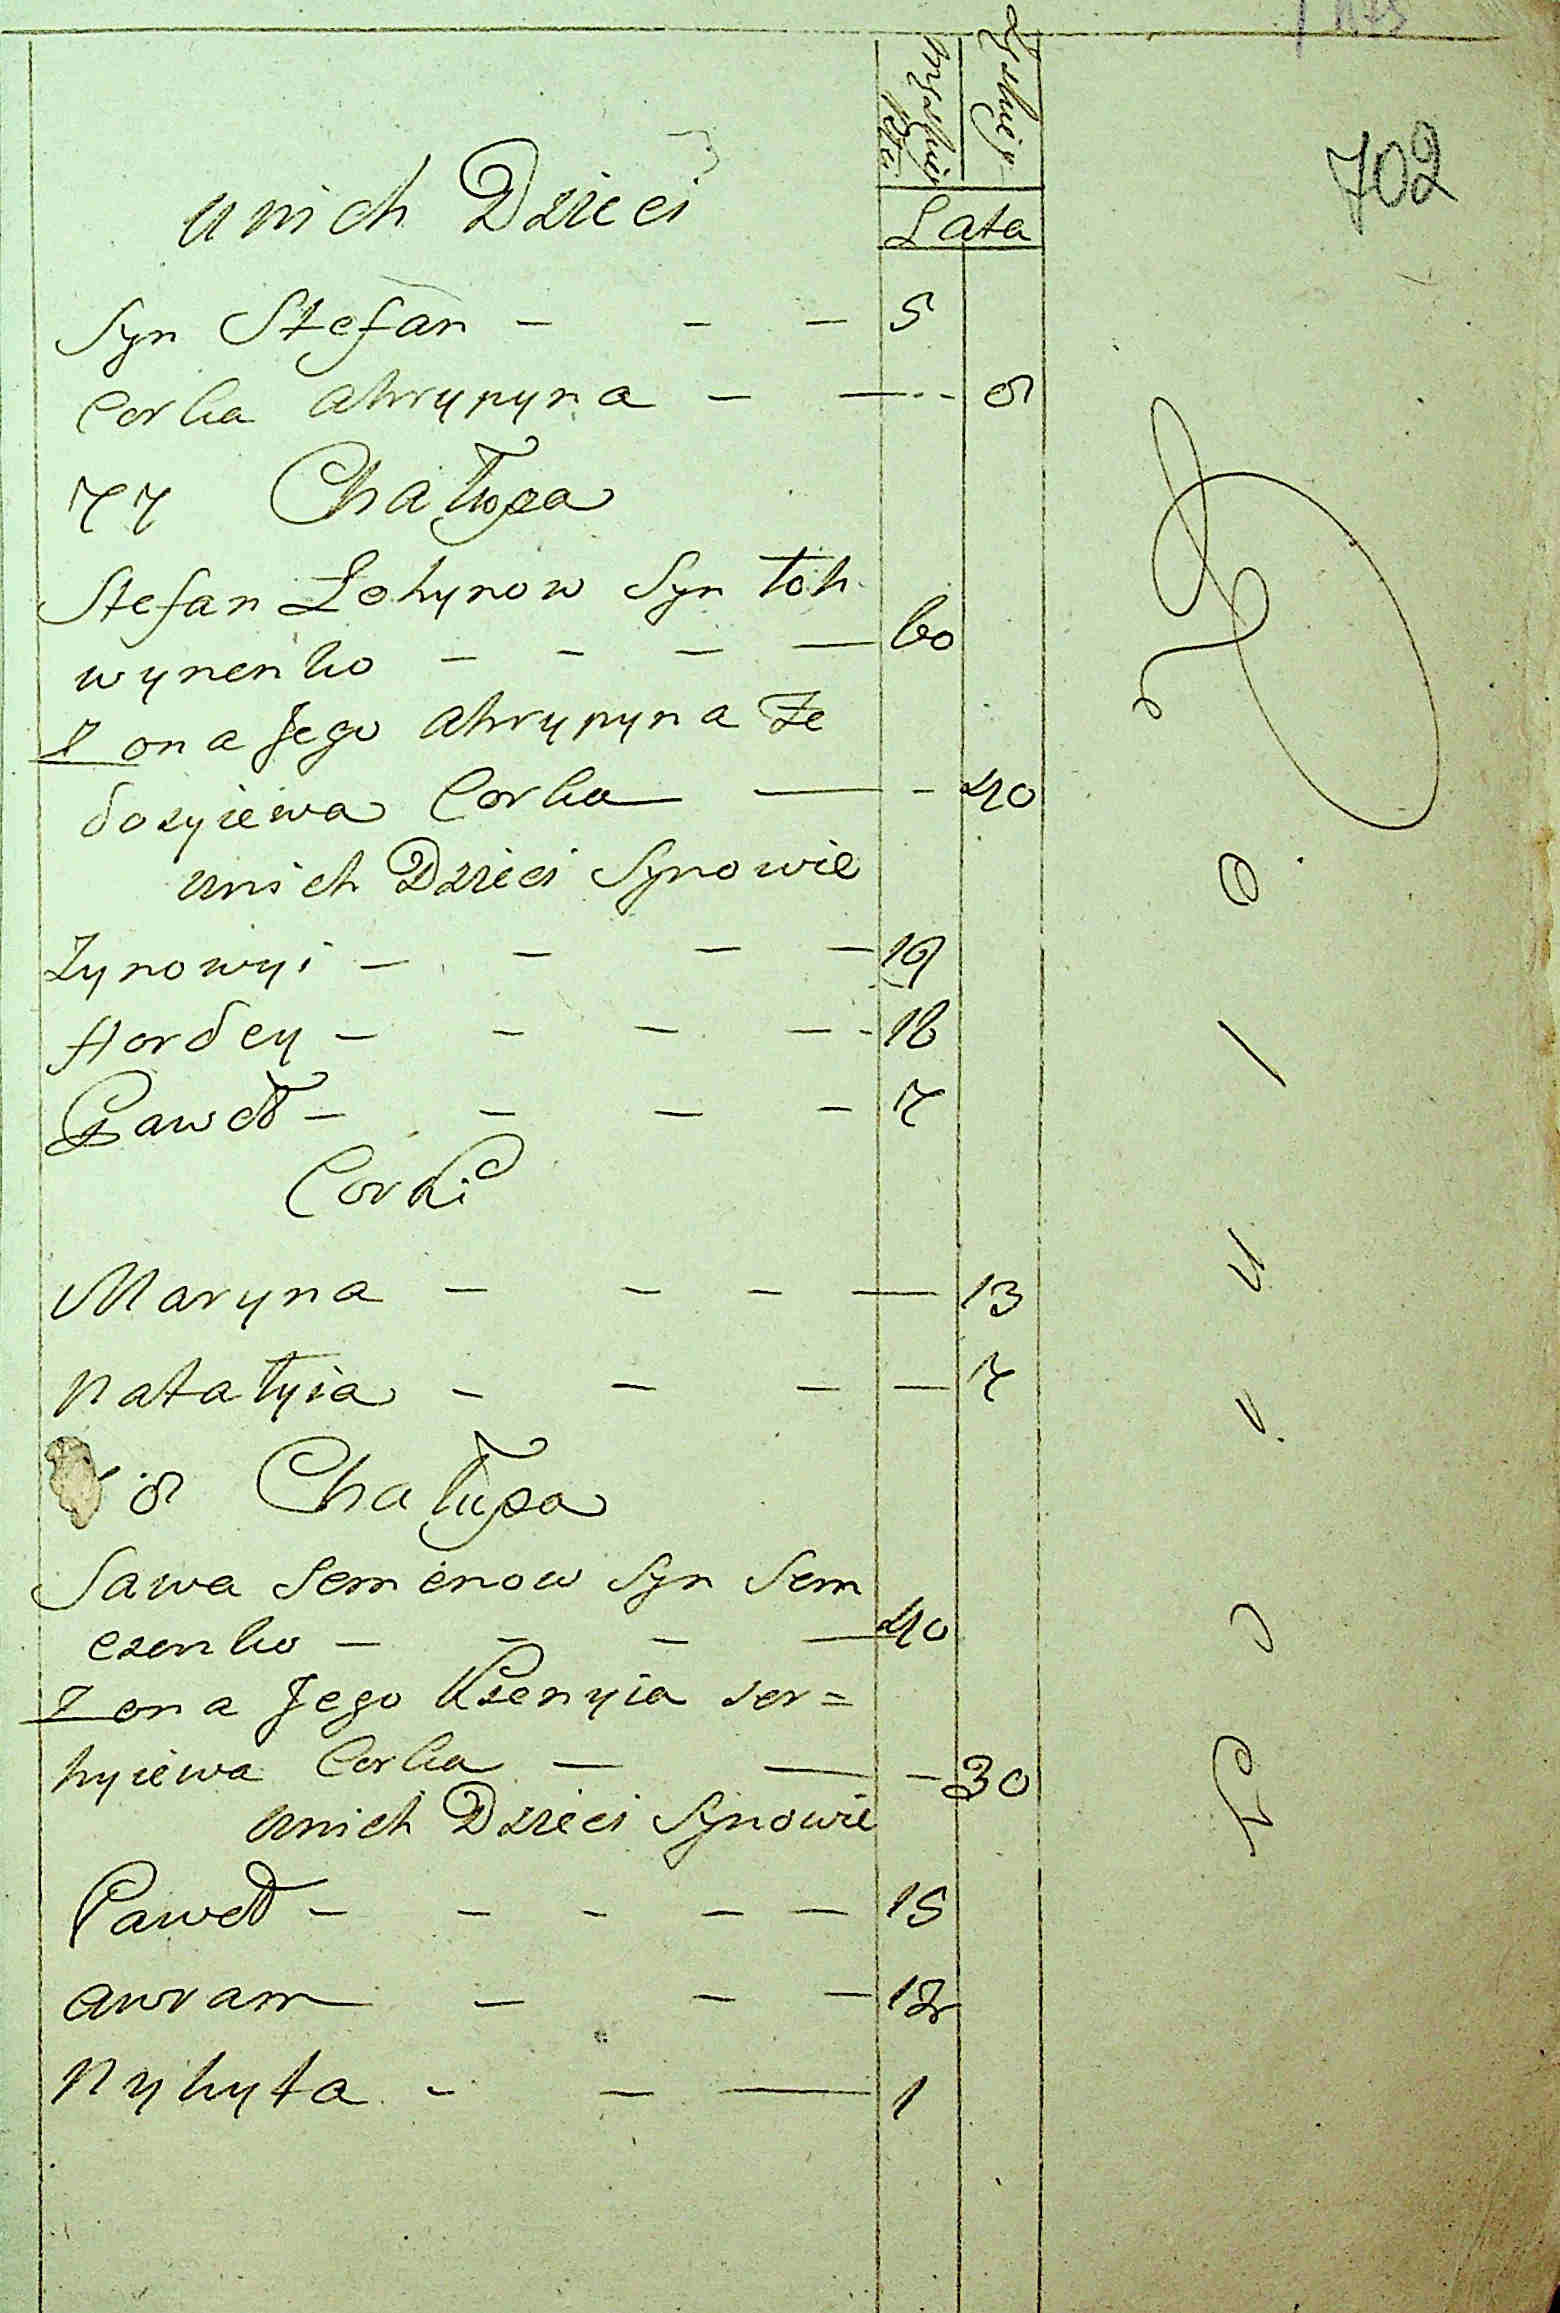 702
Lata
unich Dzieci
Syn Stefan - - - 5
Corka Ahrypyna - - - 8
77 Chałupa
Stefan Łohynow Syn Łoh
wynenko - - - - 60
Zona Jego Ahrypyna Te
dosyiewa Corka - - 40
unich Dzieci Synowie
Zynowyi - - - - 19
Hordey - - - - 16
Paweł - - - - 7
Corki
Maryna - - - - 13
Natałyia - - - - 7
8 Chałupa
Sawa Semenow Syn Sem
czenko - - - - 40
Zona Jego Ksenyia Ser=
hyiewa Corka - - - 30
unich Dzieci Synowie
Paweł - - - - - 15
Awram - - - 12
Nykyta - - - 1